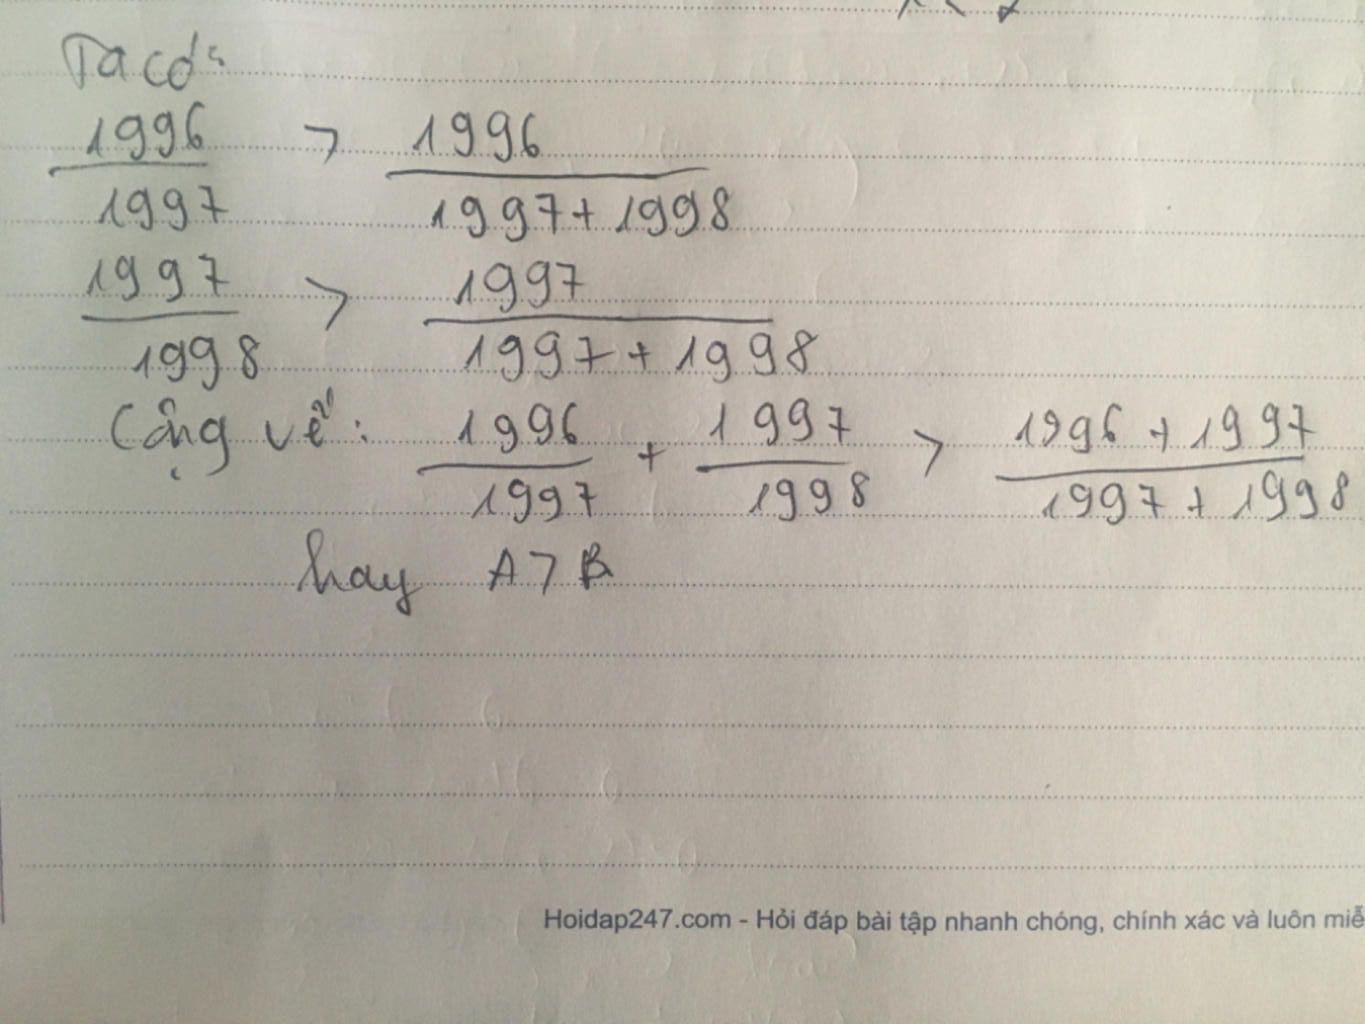 Ta có:
1996/1997 > 1996/(1997+1998)
1997/1998 > 1997/(1997+1998)
Cộng vế: 1996/1997 + 1997/1998 > (1996+1997)/(1997+1998)
hay A > B
Hoidap247.com - Hỏi đáp bài tập nhanh chóng, chính xác và luôn miễ